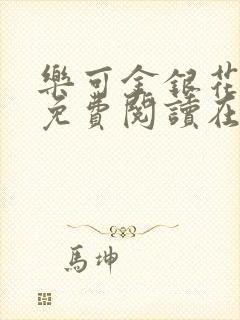 樂可金銀花
免費閱讀在
馬坤